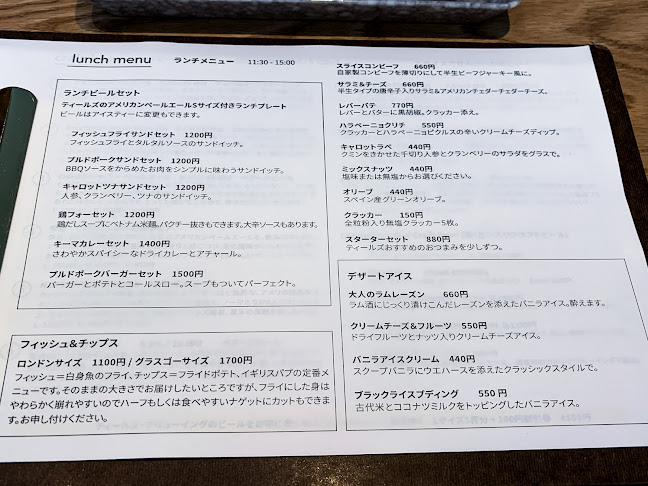 lunch menu ランチメニュー 11:30 - 15:00
ランチビールセット
ティールズのアメリカンペールエールSサイズ付きランチプレート
ビールはアイスティーに変更もできます。
フィッシュフライサンドセット 1200円
フィッシュフライとタルタルソースのサンドイッチ。
プルドポークサンドセット 1200円
BBQソースをからめたお肉をシンプルに味わうサンドイッチ。
キャロットツナサンドセット 1200円
人参、クランベリー、ツナのサンドイッチ。
鶏フォーセット 1200円
鶏だしスープにベトナム米麺。パクチー抜きもできます。大辛ソースもあります。
キーマカレーセット 1400円
さわやかスパイシーなドライカレーとアチャール。
プルドポークバーガーセット 1500円
バーガーとポテトとコールスロー。スープもついてパーフェクト。
フィッシュ&チップス
ロンドンサイズ 1100円 / グラスゴーサイズ 1700円
フィッシュ=白身魚のフライ、チップス=フライドポテト、イギリスパブの定番メ
ニューです。そのままの大きさでお届けしたいところですが、フライにした身は
やわらかく崩れやすいのでハーフもしくは食べやすいナゲットにカットもできま
す。お申し付けください。
スライスコンビーフ 660円
自家製コンビーフを薄切りにして半生ビーフジャーキー風に。
サラミ&チーズ 660円
半生タイプの唐辛子入りサラミ&アメリカンチェダーチェダーチーズ。
レバーパテ 770円
レバーとバターに黒胡椒。クラッカー添え。
ハラペーニョクリチ 550円
クラッカーとハラペーニョピクルスの辛いクリームチーズディップ。
キャロットラペ 440円
クミンをきかせた千切り人参とクランベリーのサラダをグラスで。
ミックスナッツ 440円
塩味または無塩からお選びください。
オリーブ 440円
スペイン産グリーンオリーブ。
クラッカー 150円
全粒粉入り無塩クラッカー5枚。
スターターセット 880円
ティールズおすすめのおつまみを少しずつ。
デザートアイス
大人のラムレーズン 660円
ラム酒にじっくり漬けこんだレーズンを添えたバニラアイス。酔えます。
クリームチーズ&フルーツ 550円
ドライフルーツとナッツ入りクリームチーズアイス。
バニラアイスクリーム 440円
スクープバニラにウエハースを添えたクラッシックスタイルで。
ブラックライスプディング 550円
古代米とココナツミルクをトッピングしたバニラアイス。